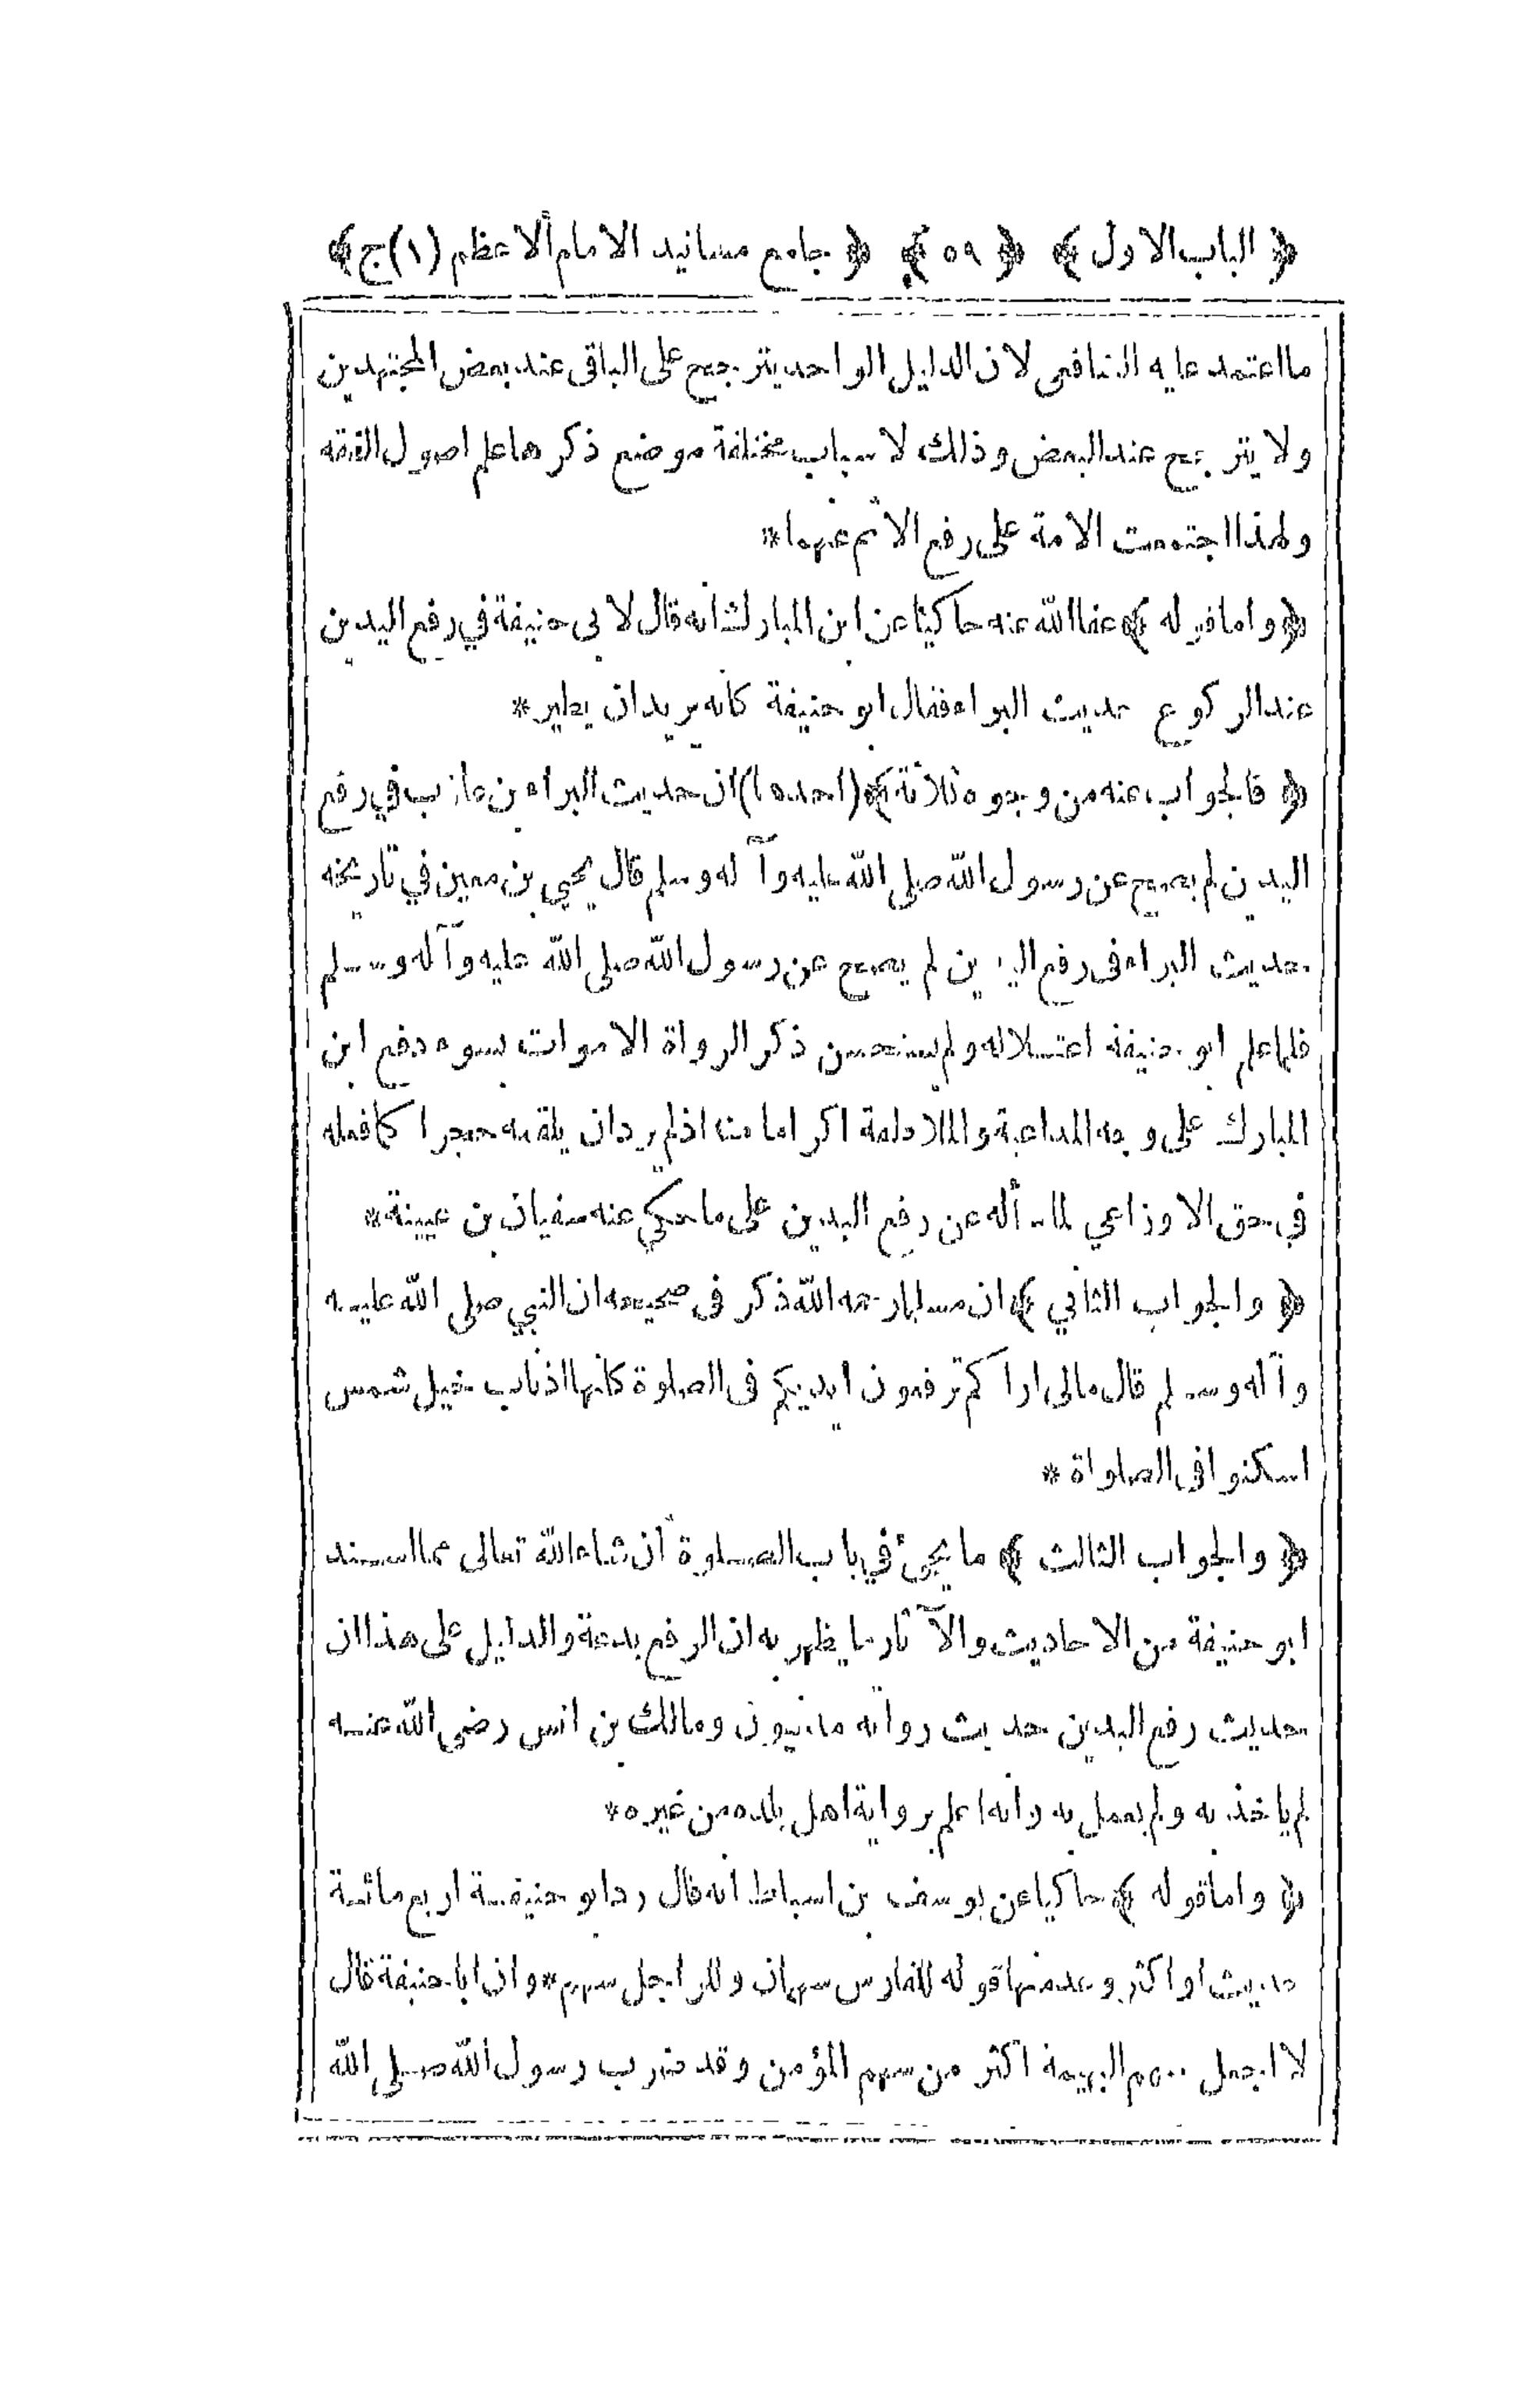 ﴿ الباب الاول ﴾ ﴿ ٥٩ ﴾ ﴿ جامع مسانيد الامام ألاعظم (١)ج ﴾
ما اعتمد عليه الشافعى لان الدليل الواحد يترجح على الباقى عند بعض المجتهدين
ولا يترجح عند البعض وذلك لاسباب مختلفة موضع ذكرها علم اصول الفقه
ولهذا اجتمعت الامة على رفع الاثم عنهما *
﴿ واما قوله ﴾ عفا الله عنه حاكيا عن ابن المبارك انه قال لابى حنيفة في رفع اليدين
عند الركوع حديث البراء فقال ابو حنيفة كانه يريد ان يطير *
﴿ فالجواب عنه من وجوه ثلاثة ﴾ (احدها) ان حديث البراء بن عازب في رفع
اليدين لم يصح عن رسول الله صلى الله عليه وآله وسلم قال يحيى بن معين في تاريخه
حديث البراء فى رفع اليدين لم يصح عن رسول الله صلى الله عليه وآله وسلم
فلما علم ابو حنيفة اعتلاله ولم يستحسن ذكر الرواة الاموات بسوء دفع ابن
المبارك على وجه المداعبة والملاطفة اكراما منه اذ لم يرد ان يلقمه حجرا كما فعله
في حق الاوزاعي لما سأله عن رفع اليدين على ما حكي عنه سفيان بن عيينة *
﴿ والجواب الثاني ﴾ ان مسلما رحمه الله ذكر فى صحيحه ان النبي صلى الله عليه
وآله وسلم قال مالى اراكم ترفعون ايديكم فى الصلوة كانها اذناب خيل شمس
اسكنوا فى الصلواة *
﴿ والجواب الثالث ﴾ ما يجئ في باب الصلوة أن شاء الله تعالى مما اسند
ابو حنيفة من الاحاديث والآثار ما يظهر به ان الرفع بدعة والدليل على هذا ان
حديث رفع اليدين حديث رواته مدنيون ومالك بن انس رضى الله عنه
لم ياخذ به ولم يعمل به وانه اعلم برواية اهل بلده من غيره *
﴿ واما قوله ﴾ حاكيا عن يوسف بن اسباط انه قال رد ابو حنيفة اربع مائة
حديث او اكثر وعد منها قوله للفارس سهمان وللراجل سهم * وان ابا حنيفة قال
لا اجعل سهم البهيمة اكثر من سهم المؤمن وقد ضرب رسول الله صلى الله